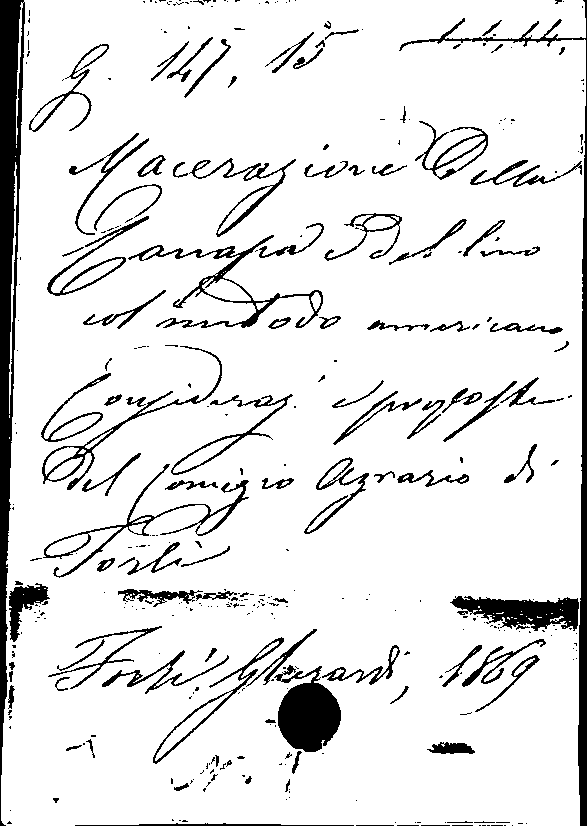 G. 147, 15 1,4,44,
Macerazione Della
Canapa e del lino
col metodo americano,
Consideraz. e proposte
del Comizio Agrario di
Forlì
Forlì, Gherardi, 1869
N. 1